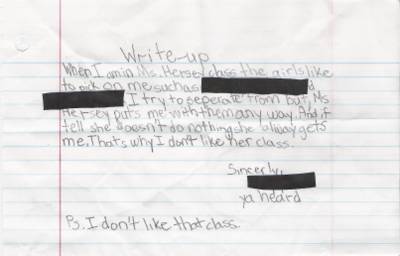 Write-up
When I am in Ms. Hersey class the girls like
to pick on me such as
I try to seperate from but, Ms
Hersey puts me with them any way. And if
tell she doesn't do nothing she alway gets
me. That's why I don't like her class.
Sincerly,
ya heard
Ps. I don't like that class.